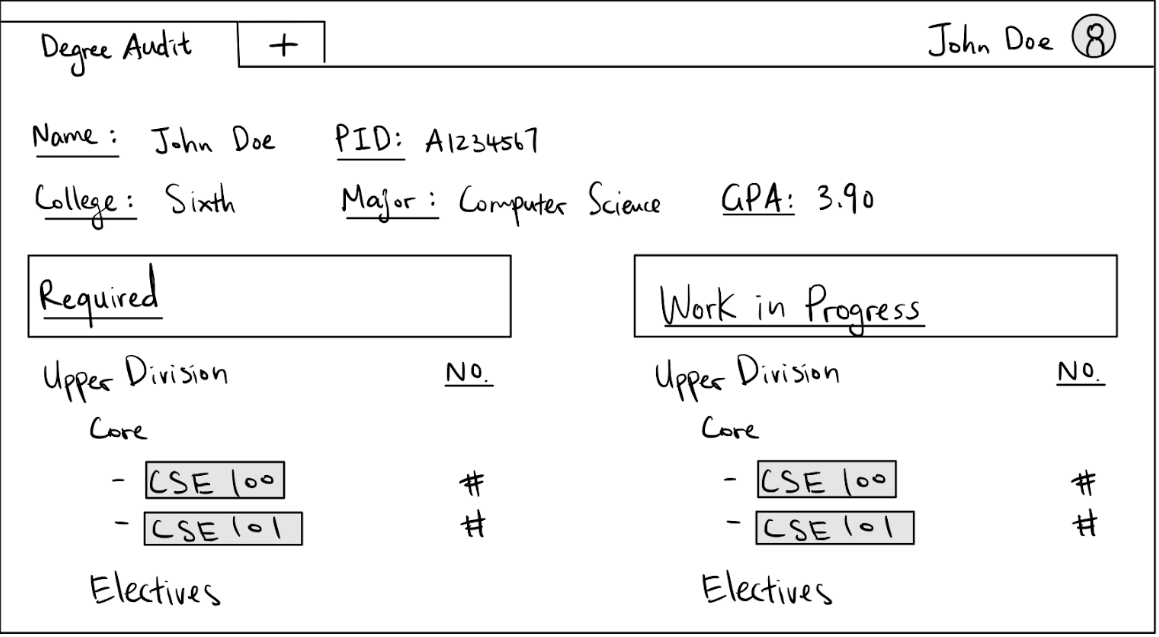 Degree Audit + John Doe
Name: John Doe PID: A1234567
College: Sixth Major: Computer Science GPA: 3.90
Required
Work in Progress
Upper Division NO.
Core
- CSE 100 #
- CSE 101 #
Electives
Upper Division NO.
Core
- CSE 100 #
- CSE 101 #
Electives